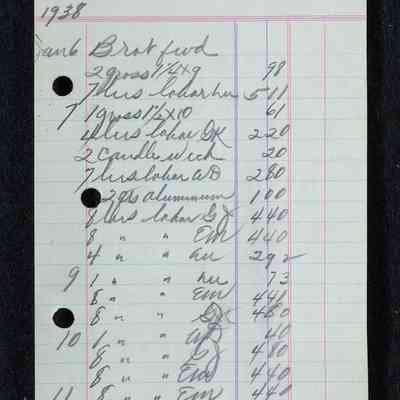 1938
Jan 6 Brot fwd
2 gross 1 1/4 x 9 98
7 hrs labor hu 511
7 1 gross 1 1/2 x 10 61
4 hrs labor GK 220
2 Candle wick 20
7 hrs labor WD 280
2 qts aluminum 100
8 hrs labor GK 440
8 " " Em 440
4 " " hu 292
9 1 " " hu 73
8 " " Em 441
8 " " GK 480
10 1 " " WD 40
8 " " GK 480
8 " " Em 440
11 8 " " Em 440